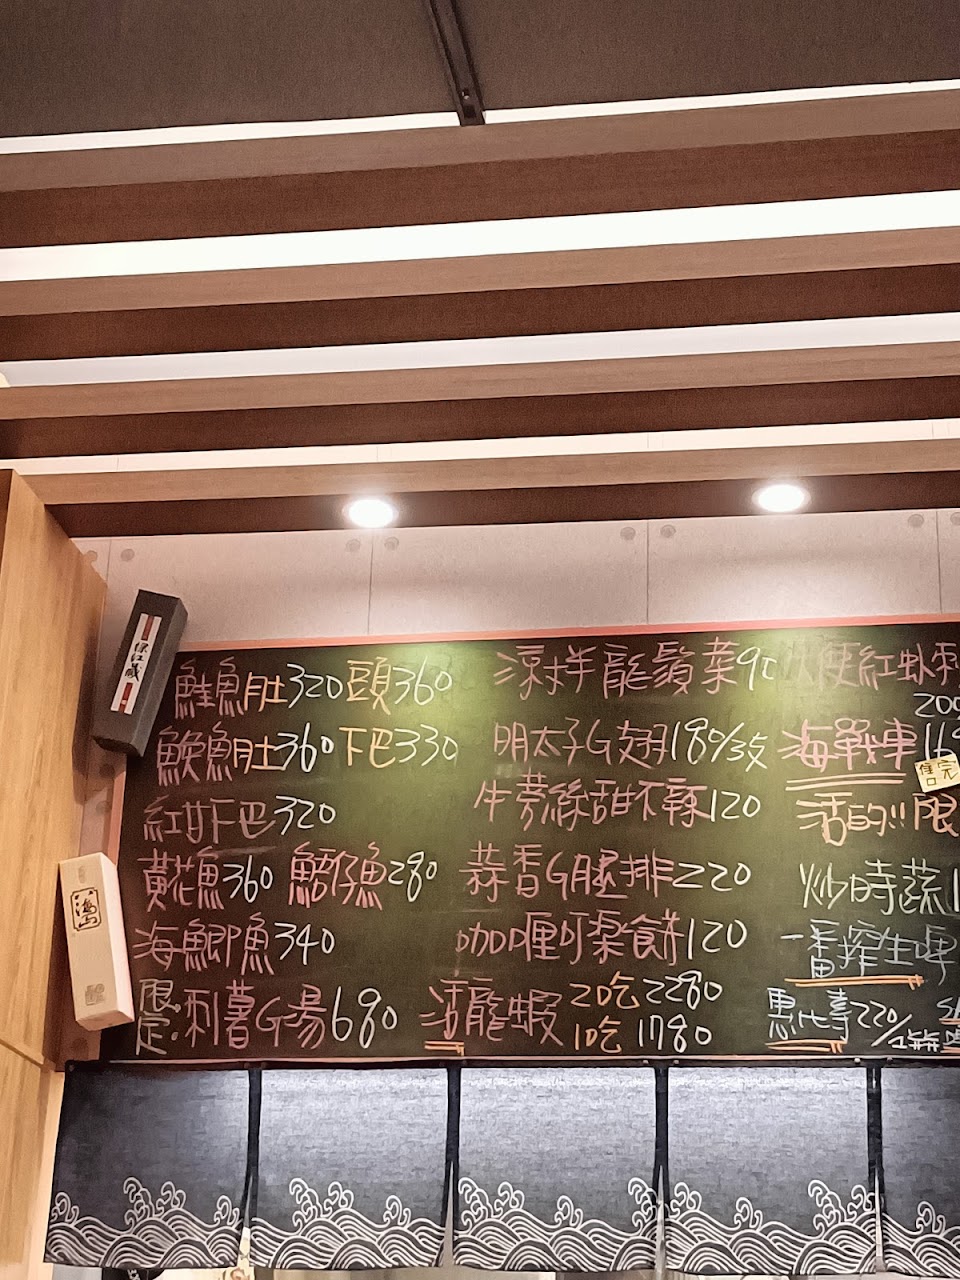 鮭魚肚320頭360
鰀魚肚360下巴330
紅甘下巴320
黃花魚360 鱈仔魚280
海鯽魚340
限定:刺薯G湯680
涼拌龍鬚菜90
明太子G翅180/3支
牛蒡絲甜不辣120
蒜香G腿排220
咖哩可樂餅120
活龍蝦 2吃2280
1吃 1780
紅蚶
200
海戰車
售完
活的!!限
炒時蔬1
一番搾生啤
220/